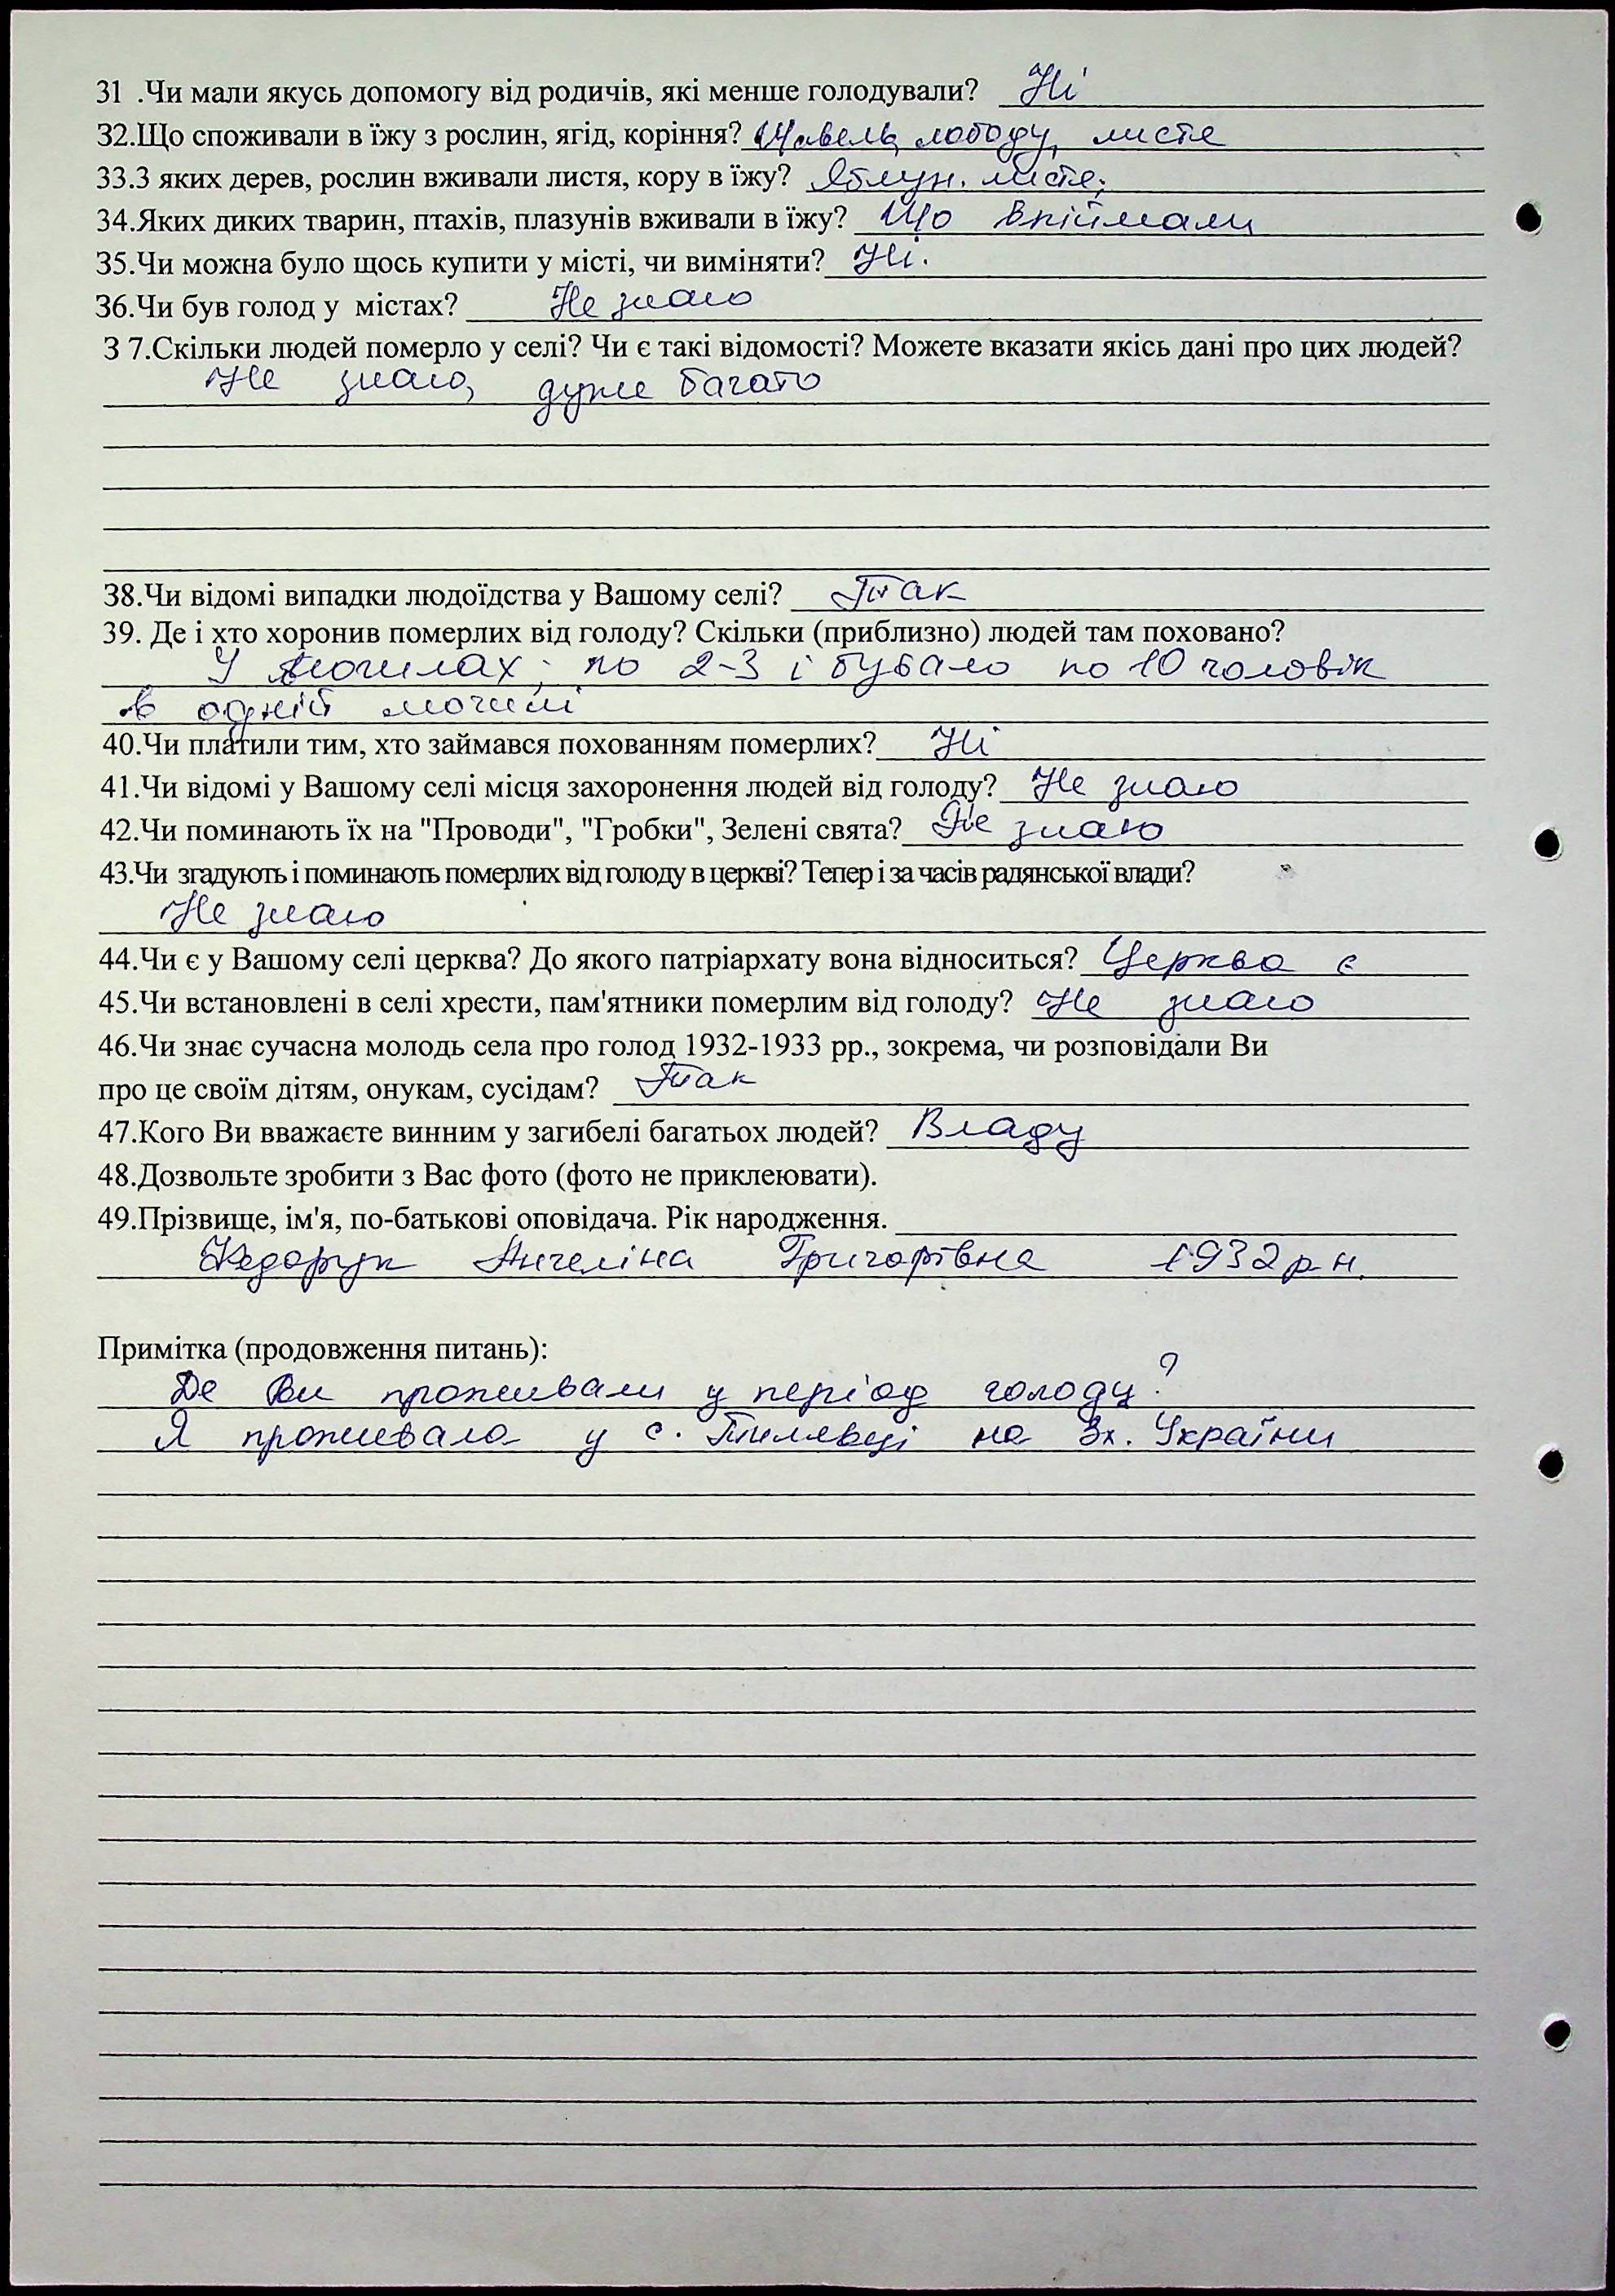 31 .Чи мали якусь допомогу від родичів, які менше голодували? Ні
32.Що споживали в їжу з рослин, ягід, коріння? Щавель, лободу, листя
33.З яких дерев, рослин вживали листя, кору в їжу? Яблун. листя;
34.Яких диких тварин, птахів, плазунів вживали в їжу? Що впіймали
35.Чи можна було щось купити у місті, чи виміняти? Ні.
36.Чи був голод у містах? Не знаю
3 7.Скільки людей померло у селі? Чи є такі відомості? Можете вказати якісь дані про цих людей?
Не знаю, дуже багато
38.Чи відомі випадки людоїдства у Вашому селі? Так
39. Де і хто хоронив померлих від голоду? Скільки (приблизно) людей там поховано?
У могилах; по 2-3 і бувало по 10 чоловік
в одній могилі
40.Чи платили тим, хто займався похованням померлих? Ні
41.Чи відомі у Вашому селі місця захоронення людей від голоду? Не знаю
42.Чи поминають їх на "Проводи", "Гробки", Зелені свята? Не знаю
43.Чи згадують і поминають померлих від голоду в церкві? Тепер і за часів радянської влади?
Не знаю
44.Чи є у Вашому селі церква? До якого патріархату вона відноситься? Церква є
45.Чи встановлені в селі хрести, пам'ятники померлим від голоду? Не знаю
46.Чи знає сучасна молодь села про голод 1932-1933 рр., зокрема, чи розповідали Ви
про це своїм дітям, онукам, сусідам? Так
47.Кого Ви вважаєте винним у загибелі багатьох людей? Владу
48.Дозвольте зробити з Вас фото (фото не приклеювати).
49.Прізвище, ім'я, по-батькові оповідача. Рік народження.
Ангеліна Григорівна 1932 р.н.
Примітка (продовження питань):
Де Ви проживали у період голоду?
Я проживала у с. на Зх. України